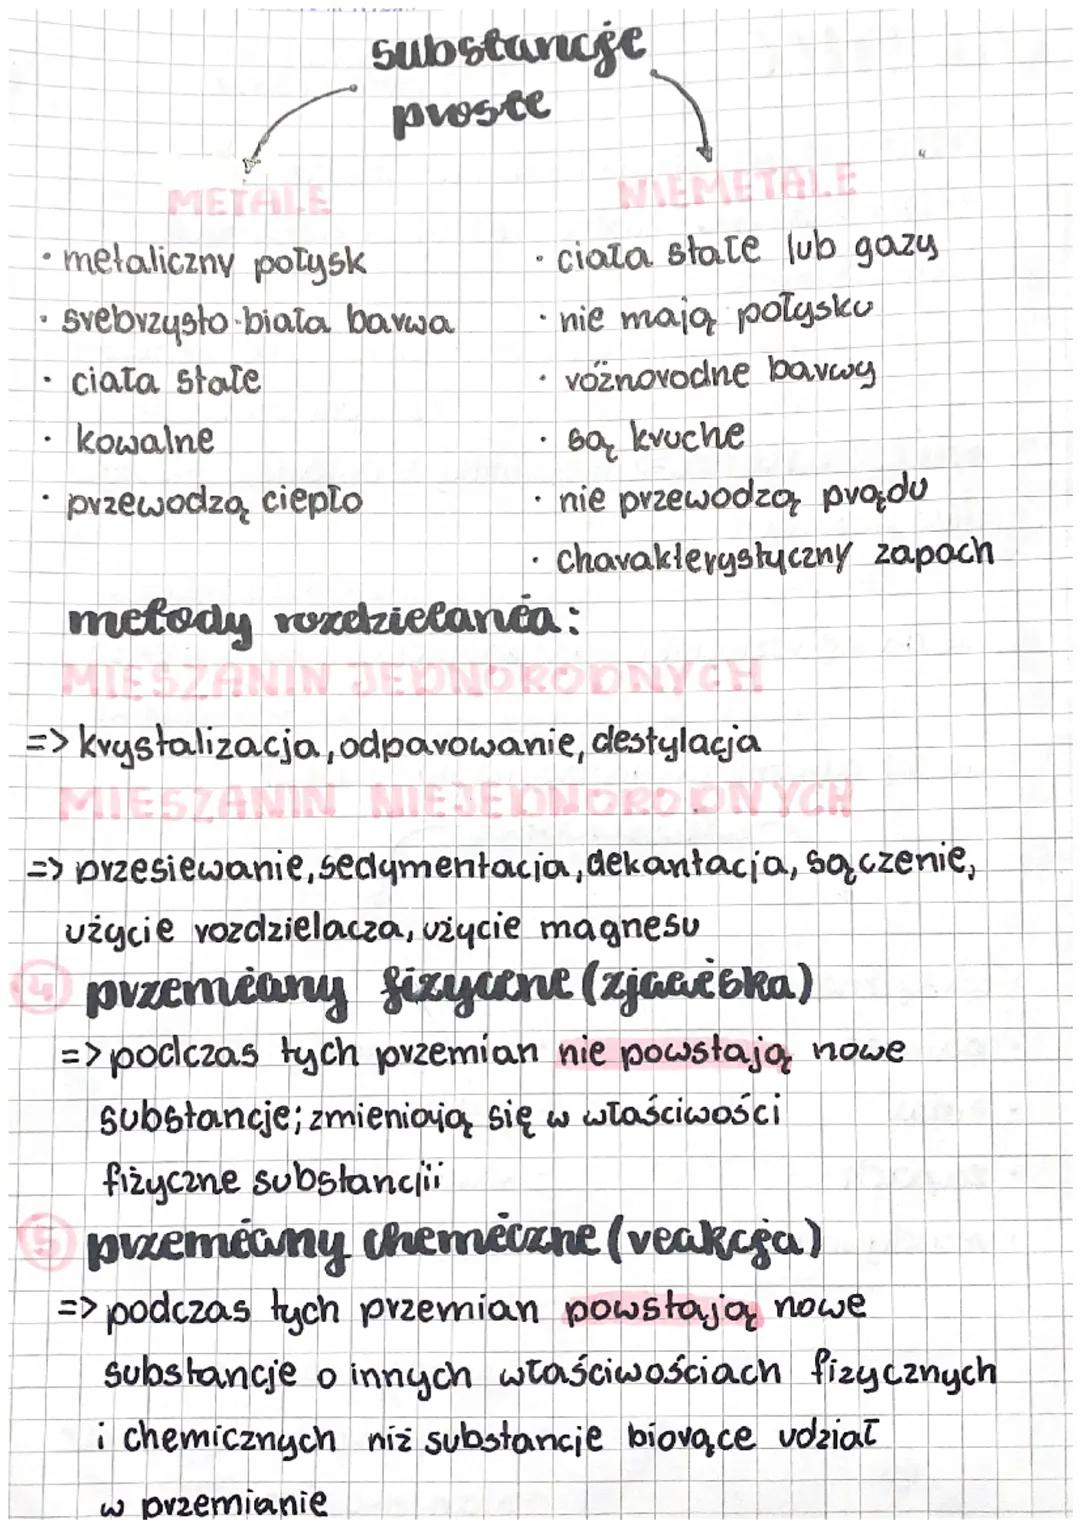 substancje
proste
METALE
NIEMETALE
· metaliczny połysk
· srebrzysto-biała barwa
· ciała stałe
· kowalne
· przewodzą ciepło
· ciała stałe lub gazy
· nie mają połysku
· różnorodne barwy
· są kruche
· nie przewodzą prądu
· charakterystyczny zapach
metody rozdzielania:
MIESZANIN JEDNORODNYCH
=> krystalizacja, odparowanie, destylacja
MIESZANIN NIEJEDNORODNYCH
=> przesiewanie, sedymentacja, dekantacja, sączenie,
użycie rozdzielacza, użycie magnesu
4 przemiany fizyczne (zjawiska)
=> podczas tych przemian nie powstają nowe
substancje; zmieniają się w właściwości
fizyczne substancjii
5 przemiany chemiczne (reakcja)
=> podczas tych przemian powstają nowe
substancje o innych właściwościach fizycznych
i chemicznych niż substancje biorące udział
w przemianie